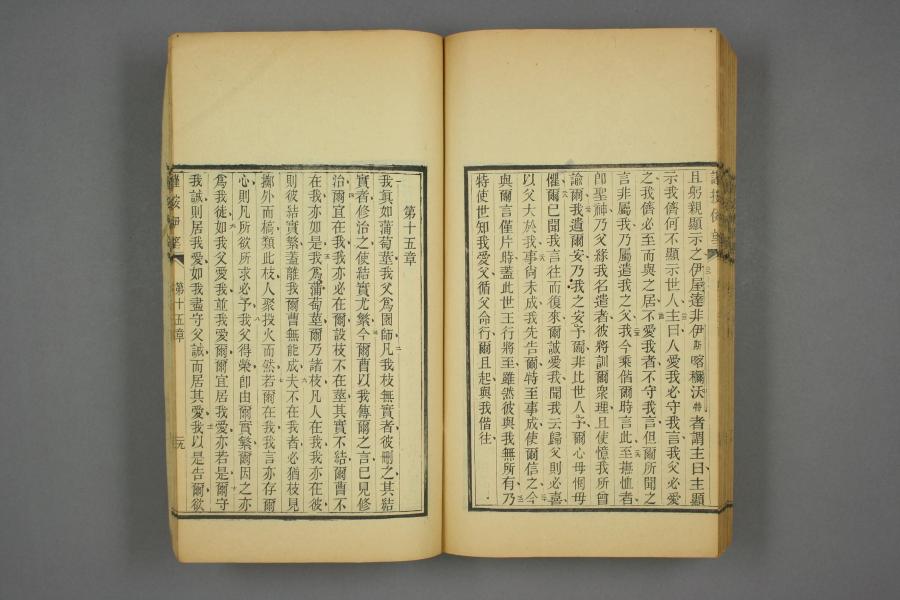 且躬親顯示之伊屋達非伊斯喀穪沃特者謂主曰主顯
示我儕何不顯示世人主曰人愛我必守我言我父必愛
之我儕必至而與之居不愛我者不守我言但爾所聞之
言非屬我乃屬遣我之父我今乘偕爾時言此至撫恤者
卽聖神乃父緣我名遣者彼將訓爾衆理且使憶我所曾
諭爾我遺爾安乃我之安予爾非比世人予爾心毋惘毋
懼爾已聞我言往而復來爾誠愛我聞我云歸父則必喜
以父大於我事尙未成我先告爾特至事成使爾信之今
與爾言僅片時蓋此世王行將至雖然彼與我無所有乃
特使世知我愛父循父命行爾且起與我偕往
第十五章
我眞如蒲萄莖我父爲園師凡我枝無實者彼刪之其結
實者修治之使結實尤繁今爾曹以我傳爾之言已見修
治爾宜在我我亦必在爾設枝不在莖其實不結爾曹不
在我亦如是我爲蒲萄莖爾乃諸枝凡人在我我亦在彼
則彼結實繁蓋離我爾曹無能成夫不在我者必猶枝見
擲外而槁類此枝人聚投火而然若爾在我我言亦存爾
心則凡所欲所求必予我父得榮卽由爾實繁爾因之亦
爲我徒如我父愛我並我愛爾爾宜居我愛亦若是爾守
我誡則居我愛如我盡守父誡而居其愛我以是告爾欲
第十五章